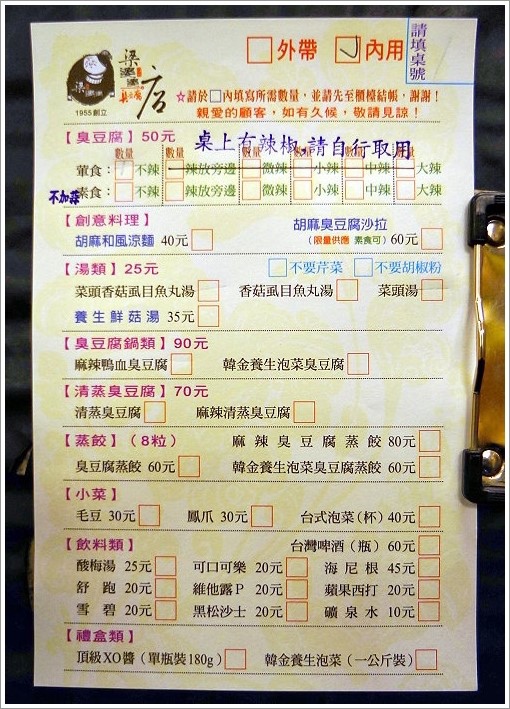 請填桌號
外帶 內用
梁
梁婆婆臭豆腐店
1955創立
☆請於□內填寫所需數量，並請先至櫃檯結帳，謝謝！
親愛的顧客，如有久候，敬請見諒！
【臭豆腐】50元 桌上有辣椒,請自行取用
數量 數量 數量 數量 數量 數量
葷食：不辣 辣放旁邊 微辣 小辣 中辣 大辣
不加蒜 素食：不辣 辣放旁邊 微辣 小辣 中辣 大辣
【創意料理】
胡麻和風涼麵 40元
胡麻臭豆腐沙拉
(限量供應 素食可) 60元
【湯類】25元 不要芹菜 不要胡椒粉
菜頭香菇虱目魚丸湯 香菇虱目魚丸湯 菜頭湯
養生鮮菇湯 35元
【臭豆腐鍋類】90元
麻辣鴨血臭豆腐 韓金養生泡菜臭豆腐
【清蒸臭豆腐】70元
清蒸臭豆腐 麻辣清蒸臭豆腐
【蒸餃】(8粒) 麻辣臭豆腐蒸餃 80元
臭豆腐蒸餃 60元 韓金養生泡菜臭豆腐蒸餃 60元
【小菜】
毛豆 30元 鳳爪 30元 台式泡菜(杯) 40元
【飲料類】 台灣啤酒(瓶) 60元
酸梅湯 25元 可口可樂 20元 海尼根 45元
舒跑 20元 維他露P 20元 蘋果西打 20元
雪碧 20元 黑松沙士 20元 礦泉水 10元
【禮盒類】
頂級XO醬(單瓶裝180g) 韓金養生泡菜(一公斤裝)